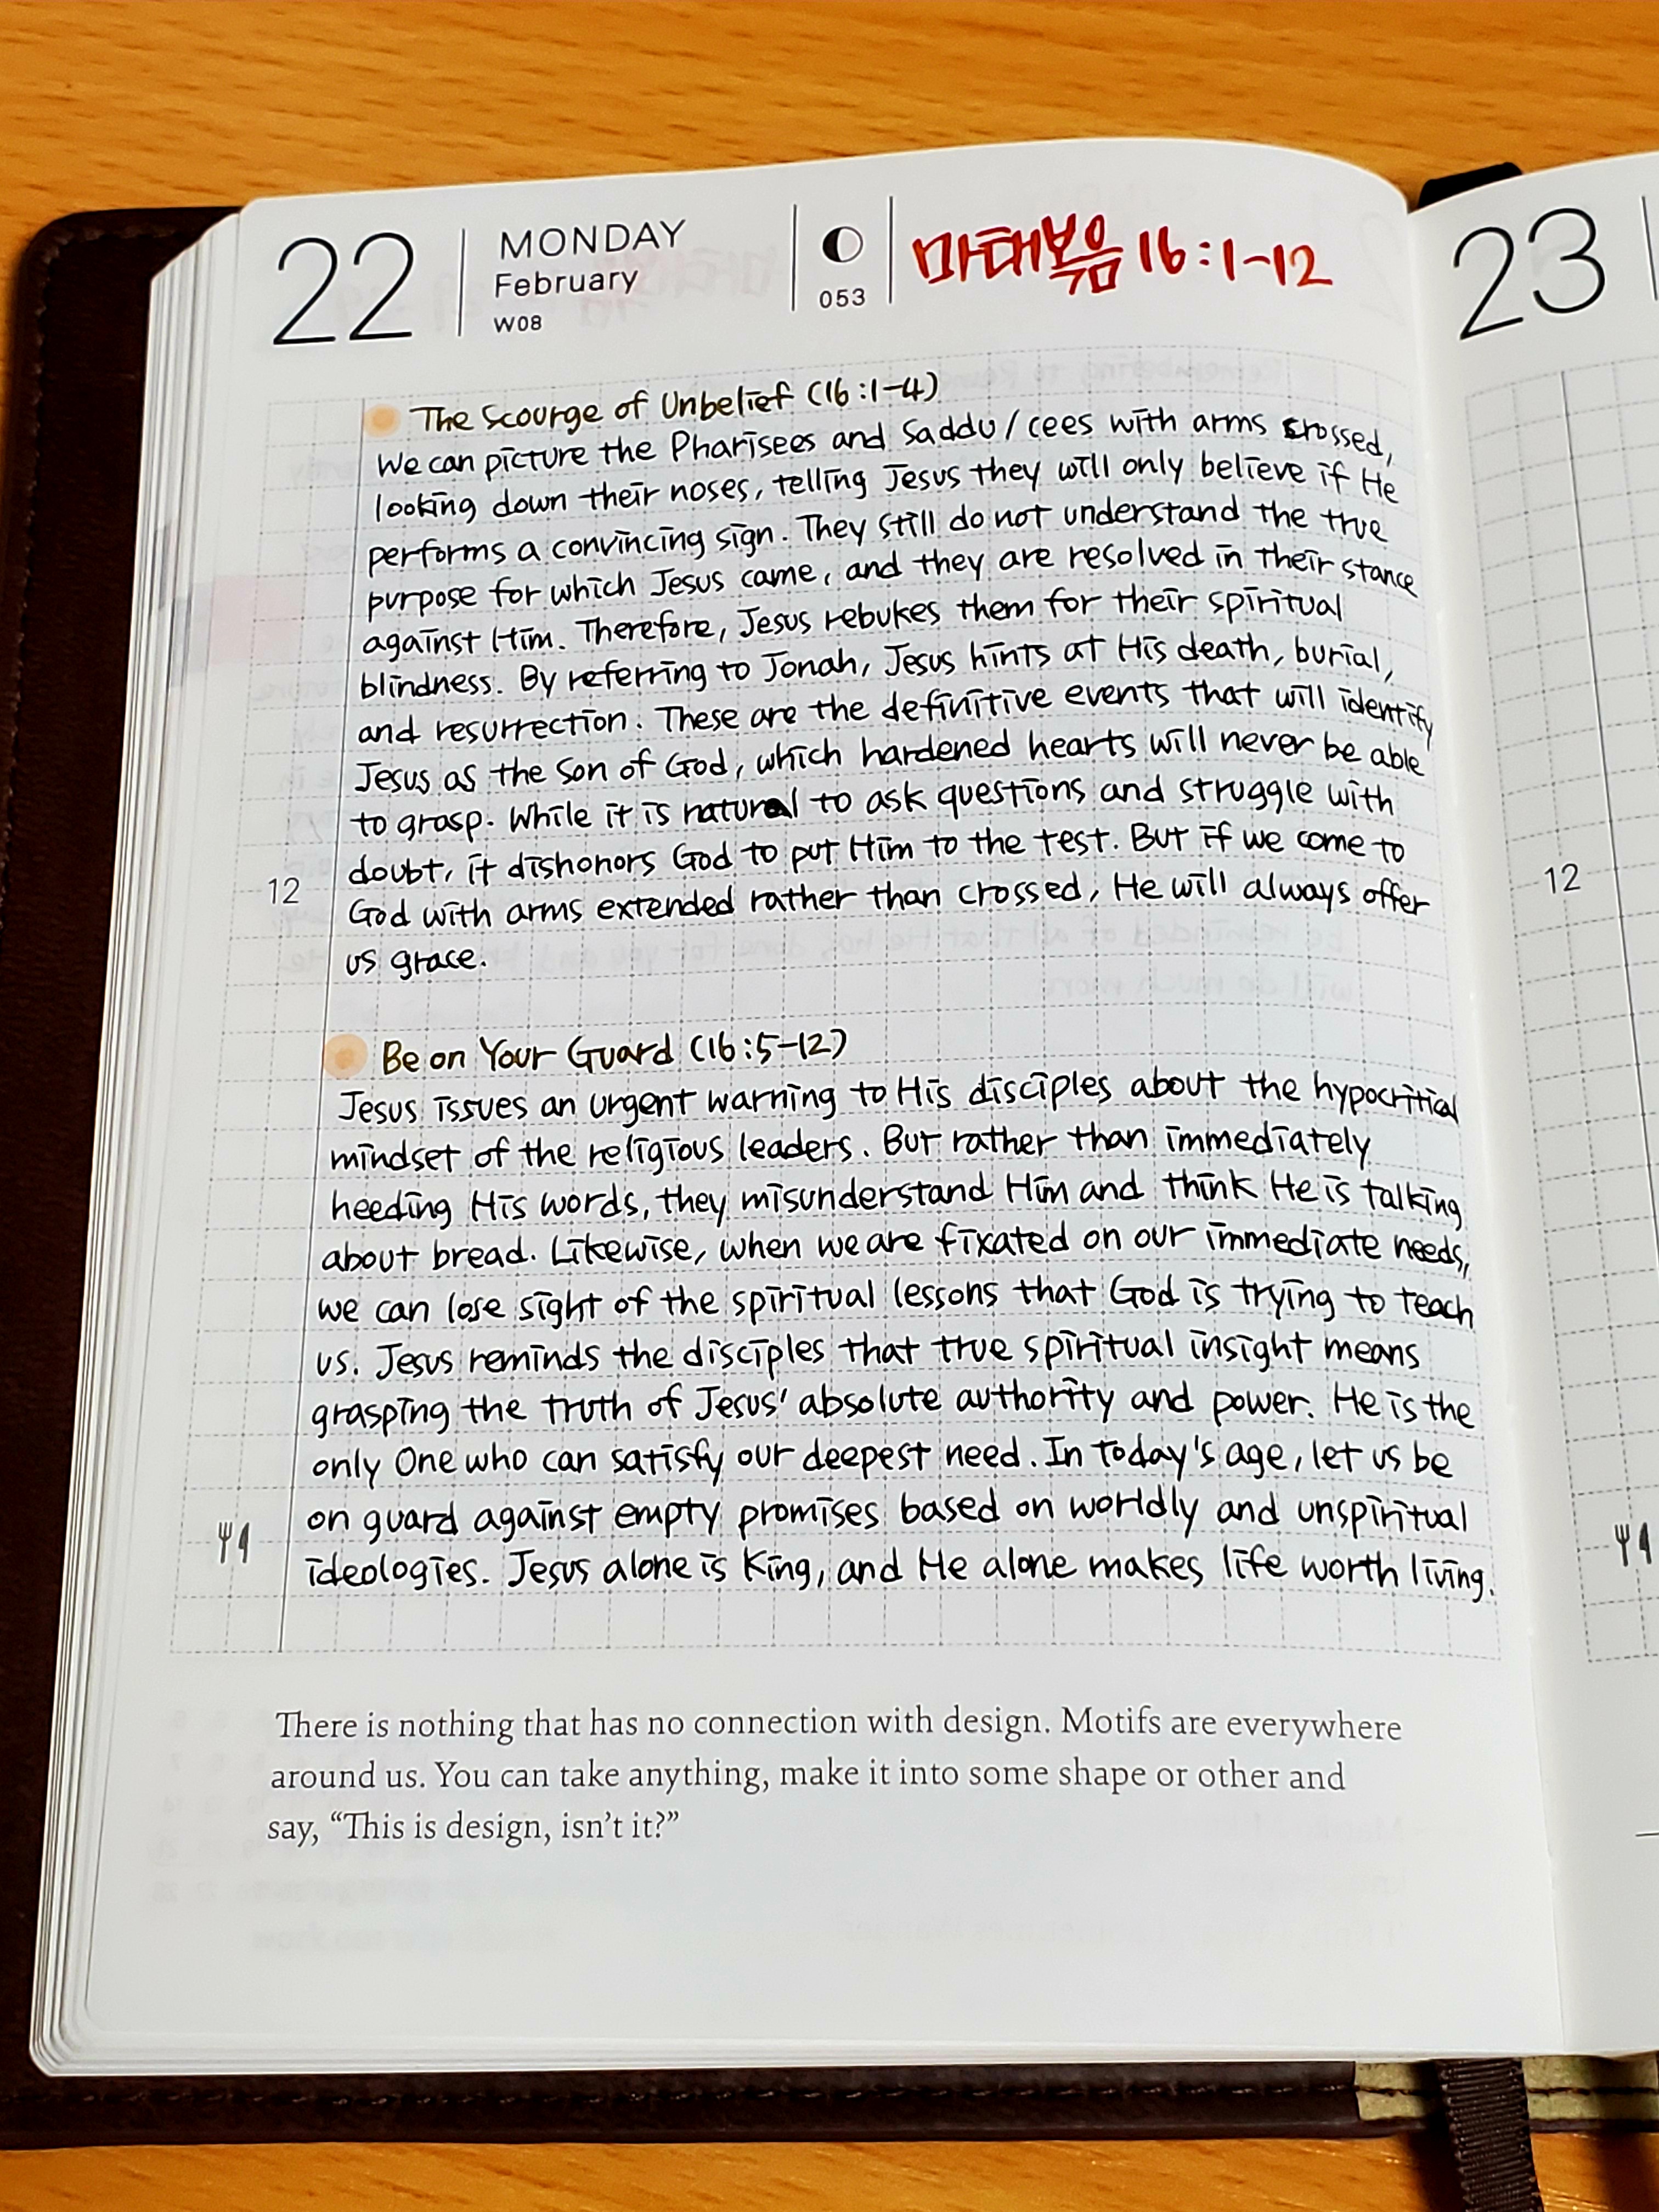 22
MONDAY
February
W08
053
마태복음 16:1-12
23
The Scourge of Unbelief (16:1-4)
We can picture the Pharisees and Saddu/cees with arms crossed,
looking down their noses, telling Jesus they will only believe if He
performs a convincing sign. They still do not understand the true
purpose for which Jesus came, and they are resolved in their stance
against Him. Therefore, Jesus rebukes them for their spiritual
blindness. By referring to Jonah, Jesus hints at His death, burial,
and resurrection. These are the definitive events that will identify
Jesus as the Son of God, which hardened hearts will never be able
to grasp. While it is natural to ask questions and struggle with
doubt, it dishonors God to put Him to the test. But if we come to
12
God with arms extended rather than crossed, He will always offer
12
us grace.
Be on Your Guard (16:5-12)
Jesus issues an urgent warning to His disciples about the hypocritical
mindset of the religious leaders. But rather than immediately
heeding His words, they misunderstand Him and think He is talking
about bread. Likewise, when we are fixated on our immediate needs,
we can lose sight of the spiritual lessons that God is trying to teach
us. Jesus reminds the disciples that true spiritual insight means
grasping the truth of Jesus' absolute authority and power. He is the
only One who can satisfy our deepest need. In today's age, let us be
on guard against empty promises based on worldly and unspiritual
ideologies. Jesus alone is King, and He alone makes life worth living.
There is nothing that has no connection with design. Motifs are everywhere
around us. You can take anything, make it into some shape or other and
say, “This is design, isn’t it?”